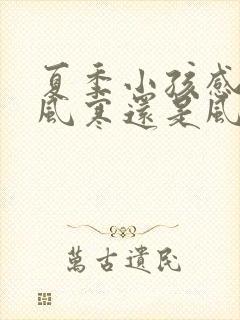 夏季小孩感
風寒還是風
萬古遺民